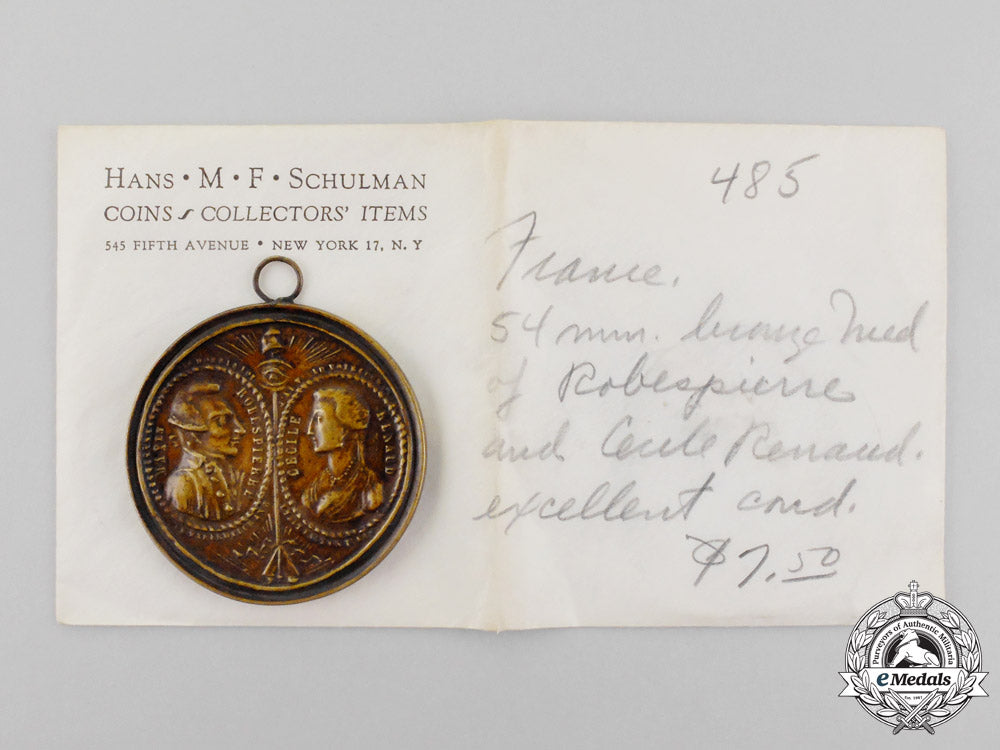 HANS • M • F • SCHULMAN
COINS & COLLECTORS' ITEMS
545 FIFTH AVENUE • NEW YORK 17, N. Y
485
France.
54 mm. bronze Med
of Robespierre
and Cecile Renaud.
excellent cond.
$7.50
ROBESPIERRE
CECILE
Purveyors of Authentic Militaria
eMedals
Est. 1987